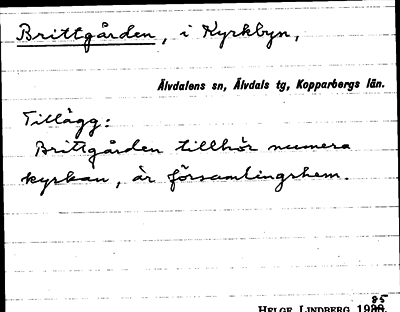 Brittgården, i Kyrkbyn,
Älvdalens sn, Älvdals tg, Kopparbergs län.
Tillägg:
Brittgården tillhör numera
kyrkan, är församlingshem.
85
HELGE LINDBERG 1930.